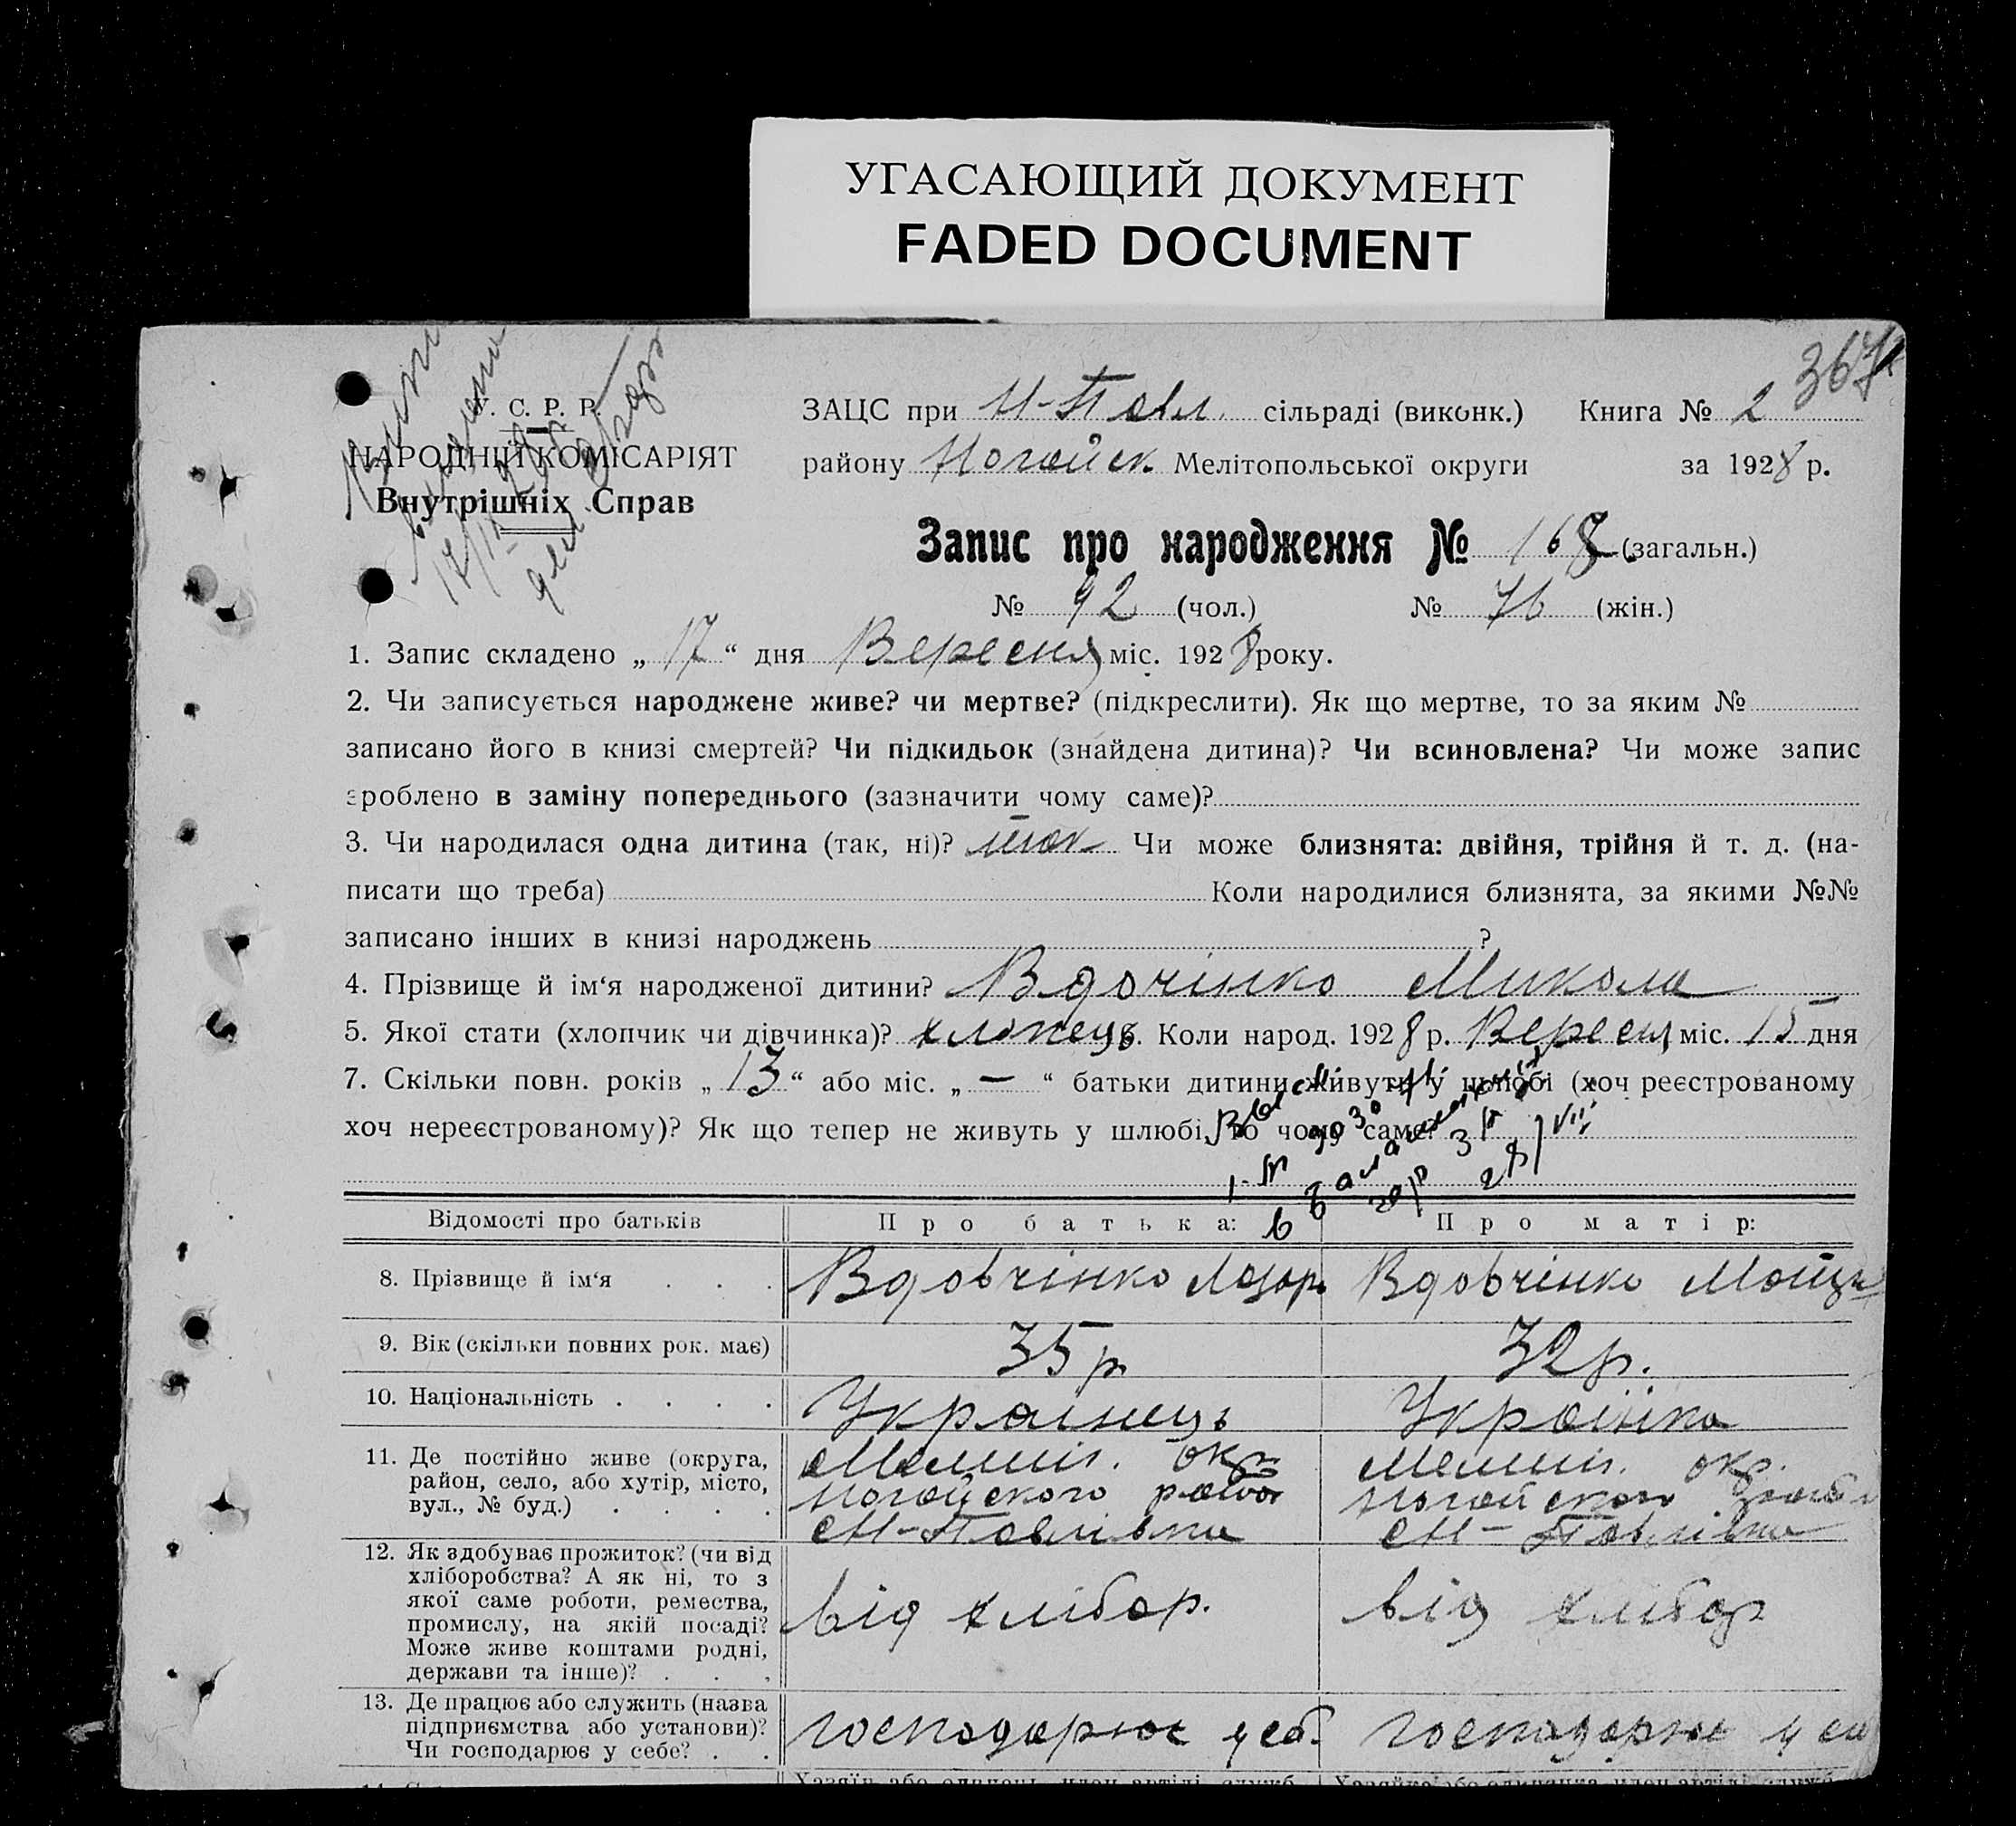 УГАСАЮЩИЙ ДОКУМЕНТ
FADED DOCUMENT
367
У. С. Р. Р.
НАРОДНІЙ КОМІСАРІЯТ
Внутрішніх Справ
ЗАЦС при Н-Павл. сільраді (виконк.) Книга № 2
району Ногайск. Мелітопольської округи за 1928 р.
Запис про народження № 168 (загальн.)
№ 92 (чол.) № 76 (жін.)
1. Запис складено „ 17 “ дня Вересня міс. 1928 року.
2. Чи записується народжене живе? чи мертве? (підкреслити). Як що мертве, то за яким №
записано його в книзі смертей? Чи підкидьок (знайдена дитина)? Чи всиновлена? Чи може запис
зроблено в заміну попереднього (зазначити чому саме)?
3. Чи народилася одна дитина (так, ні)? так Чи може близнята: двійня, трійня й т. д. (на-
писати що треба) Коли народилися близнята, за якими №№
записано інших в книзі народжень ?
4. Прізвище й ім‘я народженої дитини? Вдочінко Микола
5. Якої стати (хлопчик чи дівчинка)? хлопець. Коли народ. 1928 р. Вересня міс. 15 дня
7. Скільки повн. років „ 13 “ або міс. „ — “ батьки дитини живуть у шлюбі (хоч реєстрованому
хоч нереєстрованому)? Як що тепер не живуть у шлюбі, то чому саме?
Відомості про батьків Про батька: Про матір:
8. Прізвище й ім‘я . . . Вдовчінко Лазар Вдовчінко
9. Вік (скільки повних рок. має) 35 р 32 р.
10. Національність . . . . Українець Українка
11. Де постійно живе (округа, Меліт. окр. Меліт. окр.
район, село, або хутір, місто, Ногайского району Ногайского
вул., № буд.) . . . . с Н-Павлівка с Н-Павлівка
12. Як здобуває прожиток? (чи від
хліборобства? А як ні, то з
якої саме роботи, ремества, від хлібор. від хлібор
промислу, на якій посаді?
Може живе коштами родні,
держави та інше)? . . .
13. Де працює або служить (назва
підприємства або установи)? господарює у себ. господарює у себ
Чи господарює у себе? . .